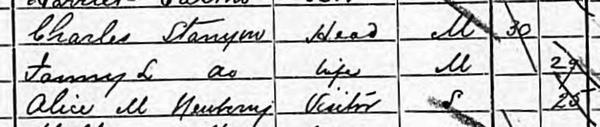 Charles Stanyon Head M 30
Fanny L do Wife M 29
Alice M Newberry Visitor S 25